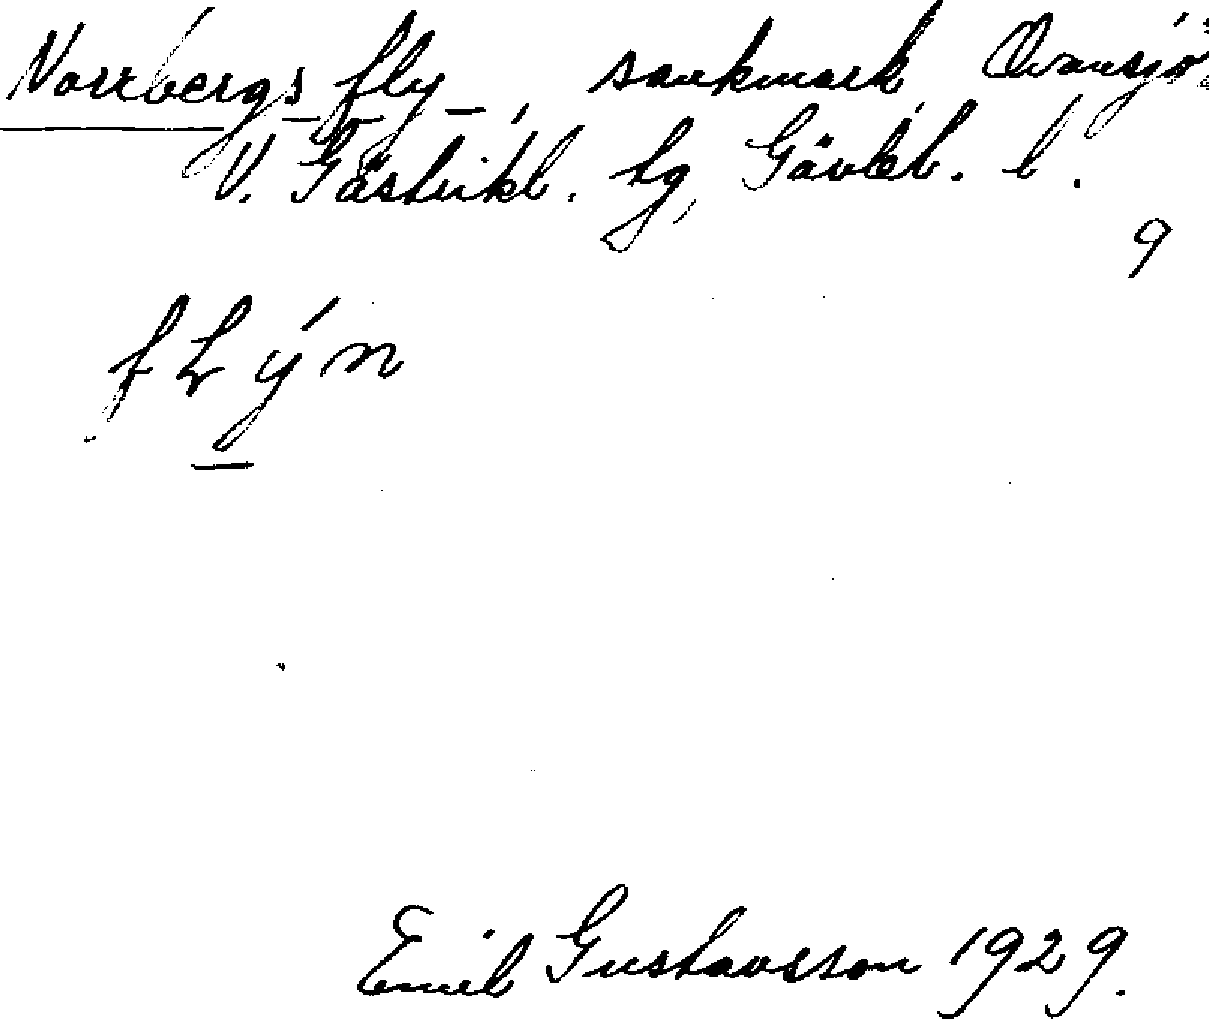 Norrbergsfly, sankmark, Ovansjö
V. Gästrikl. tg, Gävleb. l.
9
fLýn
Emil Gustavsson 1929.